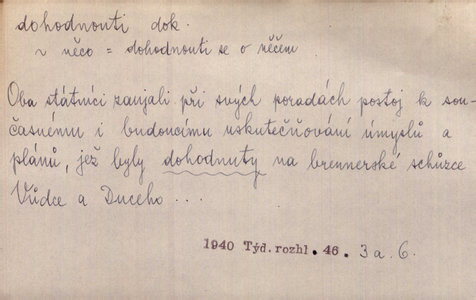 dohodnouti dok.
~ něco = dohodnouti se o něčem
Oba státníci zaujali při svých poradách postoj k sou-
časnému i budoucímu uskutečňování úmyslů a
plánů, jež byly dohodnuty na brennerské schůzce
Vůdce a Duceho ...
1940 Týd. rozhl. 46. 3 a 6.